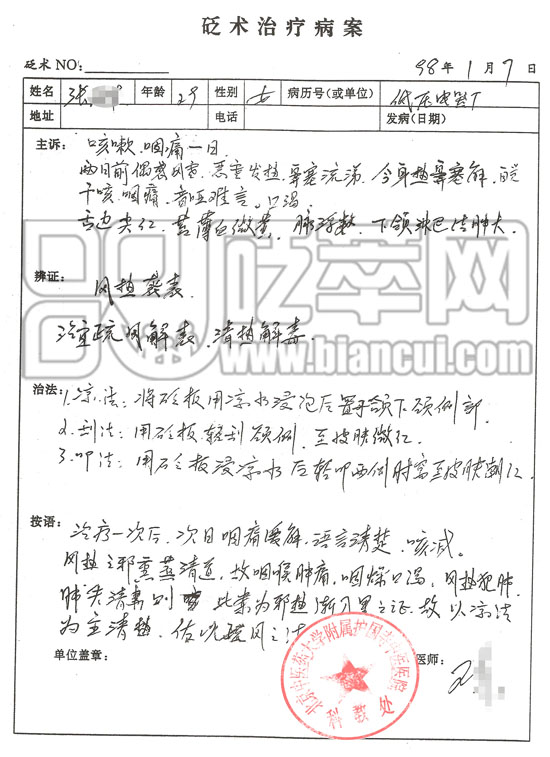 砭术治疗病案
砭术 NO: 98 年 1 月 7 日
姓名 张 年龄 29 性别 女 病历号(或单位) 低压电器厂
地址 电话 发病(日期)
主诉: 咳嗽、咽痛一日
两日前偶感风寒、恶寒发热、鼻塞流涕、今身热鼻塞解,
干咳、咽痛、音哑难言、口渴。
舌边尖红、苔薄白微黄、脉浮数、下颌淋巴结肿大
辨证:
风热袭表
治宜疏风解表、清热解毒。
治法: 1.凉法: 将砭板用凉水浸泡后置于颌下颈侧部.
2.刮法: 用砭板轻刮颈侧、至皮肤微红.
3.叩法: 用砭板浸凉水后轻叩两侧肘窝至皮肤潮红.
按语: 治疗一次后、次日咽痛缓解、语言清楚、咳减。
风热之邪熏蒸清道、故咽喉肿痛、咽燥口渴、风热犯肺
肺失清肃则 此案为邪热渐入里之证、故以凉法
为主清热、佐以疏风之法
单位盖章: 医师:
北京中医药大学附属护国寺中医医院
科教处
砭萃网
www.biancui.com